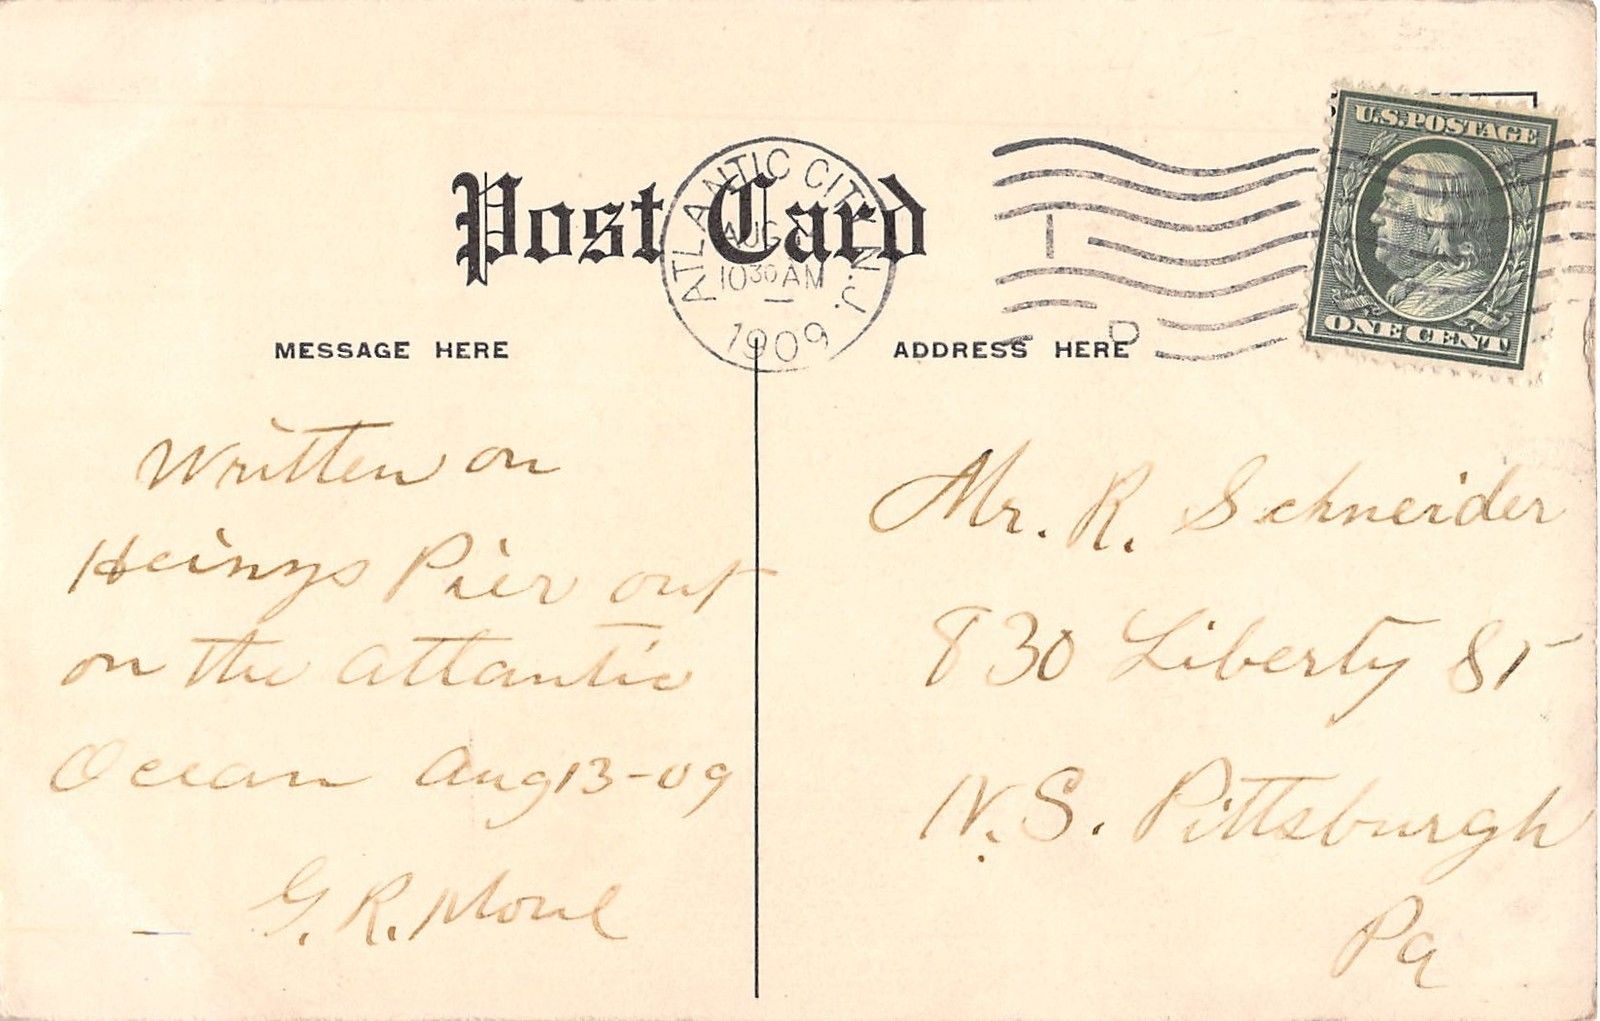 U.S. POSTAGE
ONE CENT
Post Card
ATLANTIC CITY, N.J.
AUG
10 30 AM
1909
I
D
MESSAGE HERE
ADDRESS HERE
Written on
Heinys Pier out
on the Atlantic
Ocean Aug 13-09
G. R.
Mr. R. Schneider
830 Liberty St
N. S. Pittsburgh
Pa